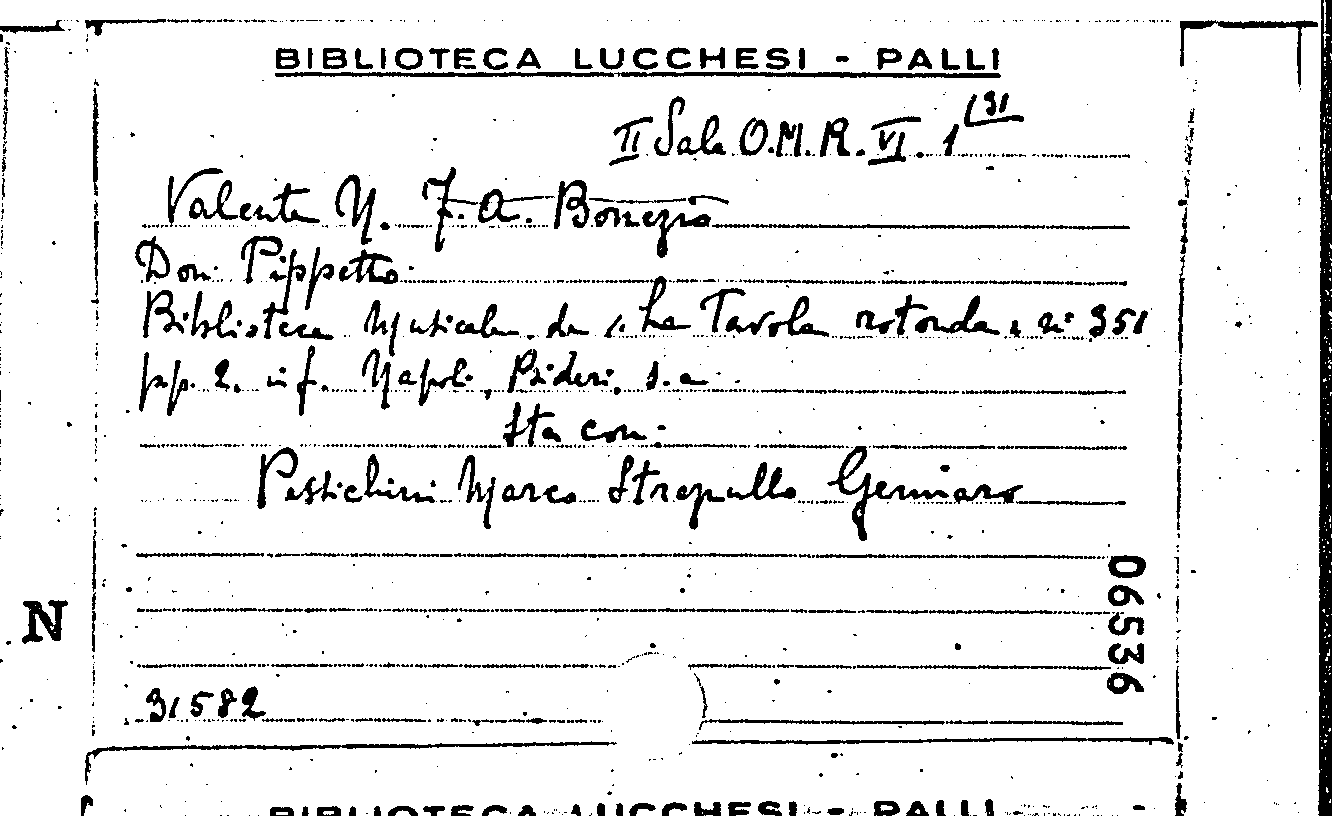 BIBLIOTECA LUCCHESI - PALLI
II Sala O.M.R. VI. 1 131
Valente N. F. A. Bonezio
Don Pippetto
Biblioteca Musicale de "La Tavola rotonda" n° 351
pp. 2. in f. Napoli, Bideri, s.a.
Sta con:
Pestichini Marco Strepullo Gennaro
N
06536
31582
BIBLIOTECA LUCCHESI - PALLI